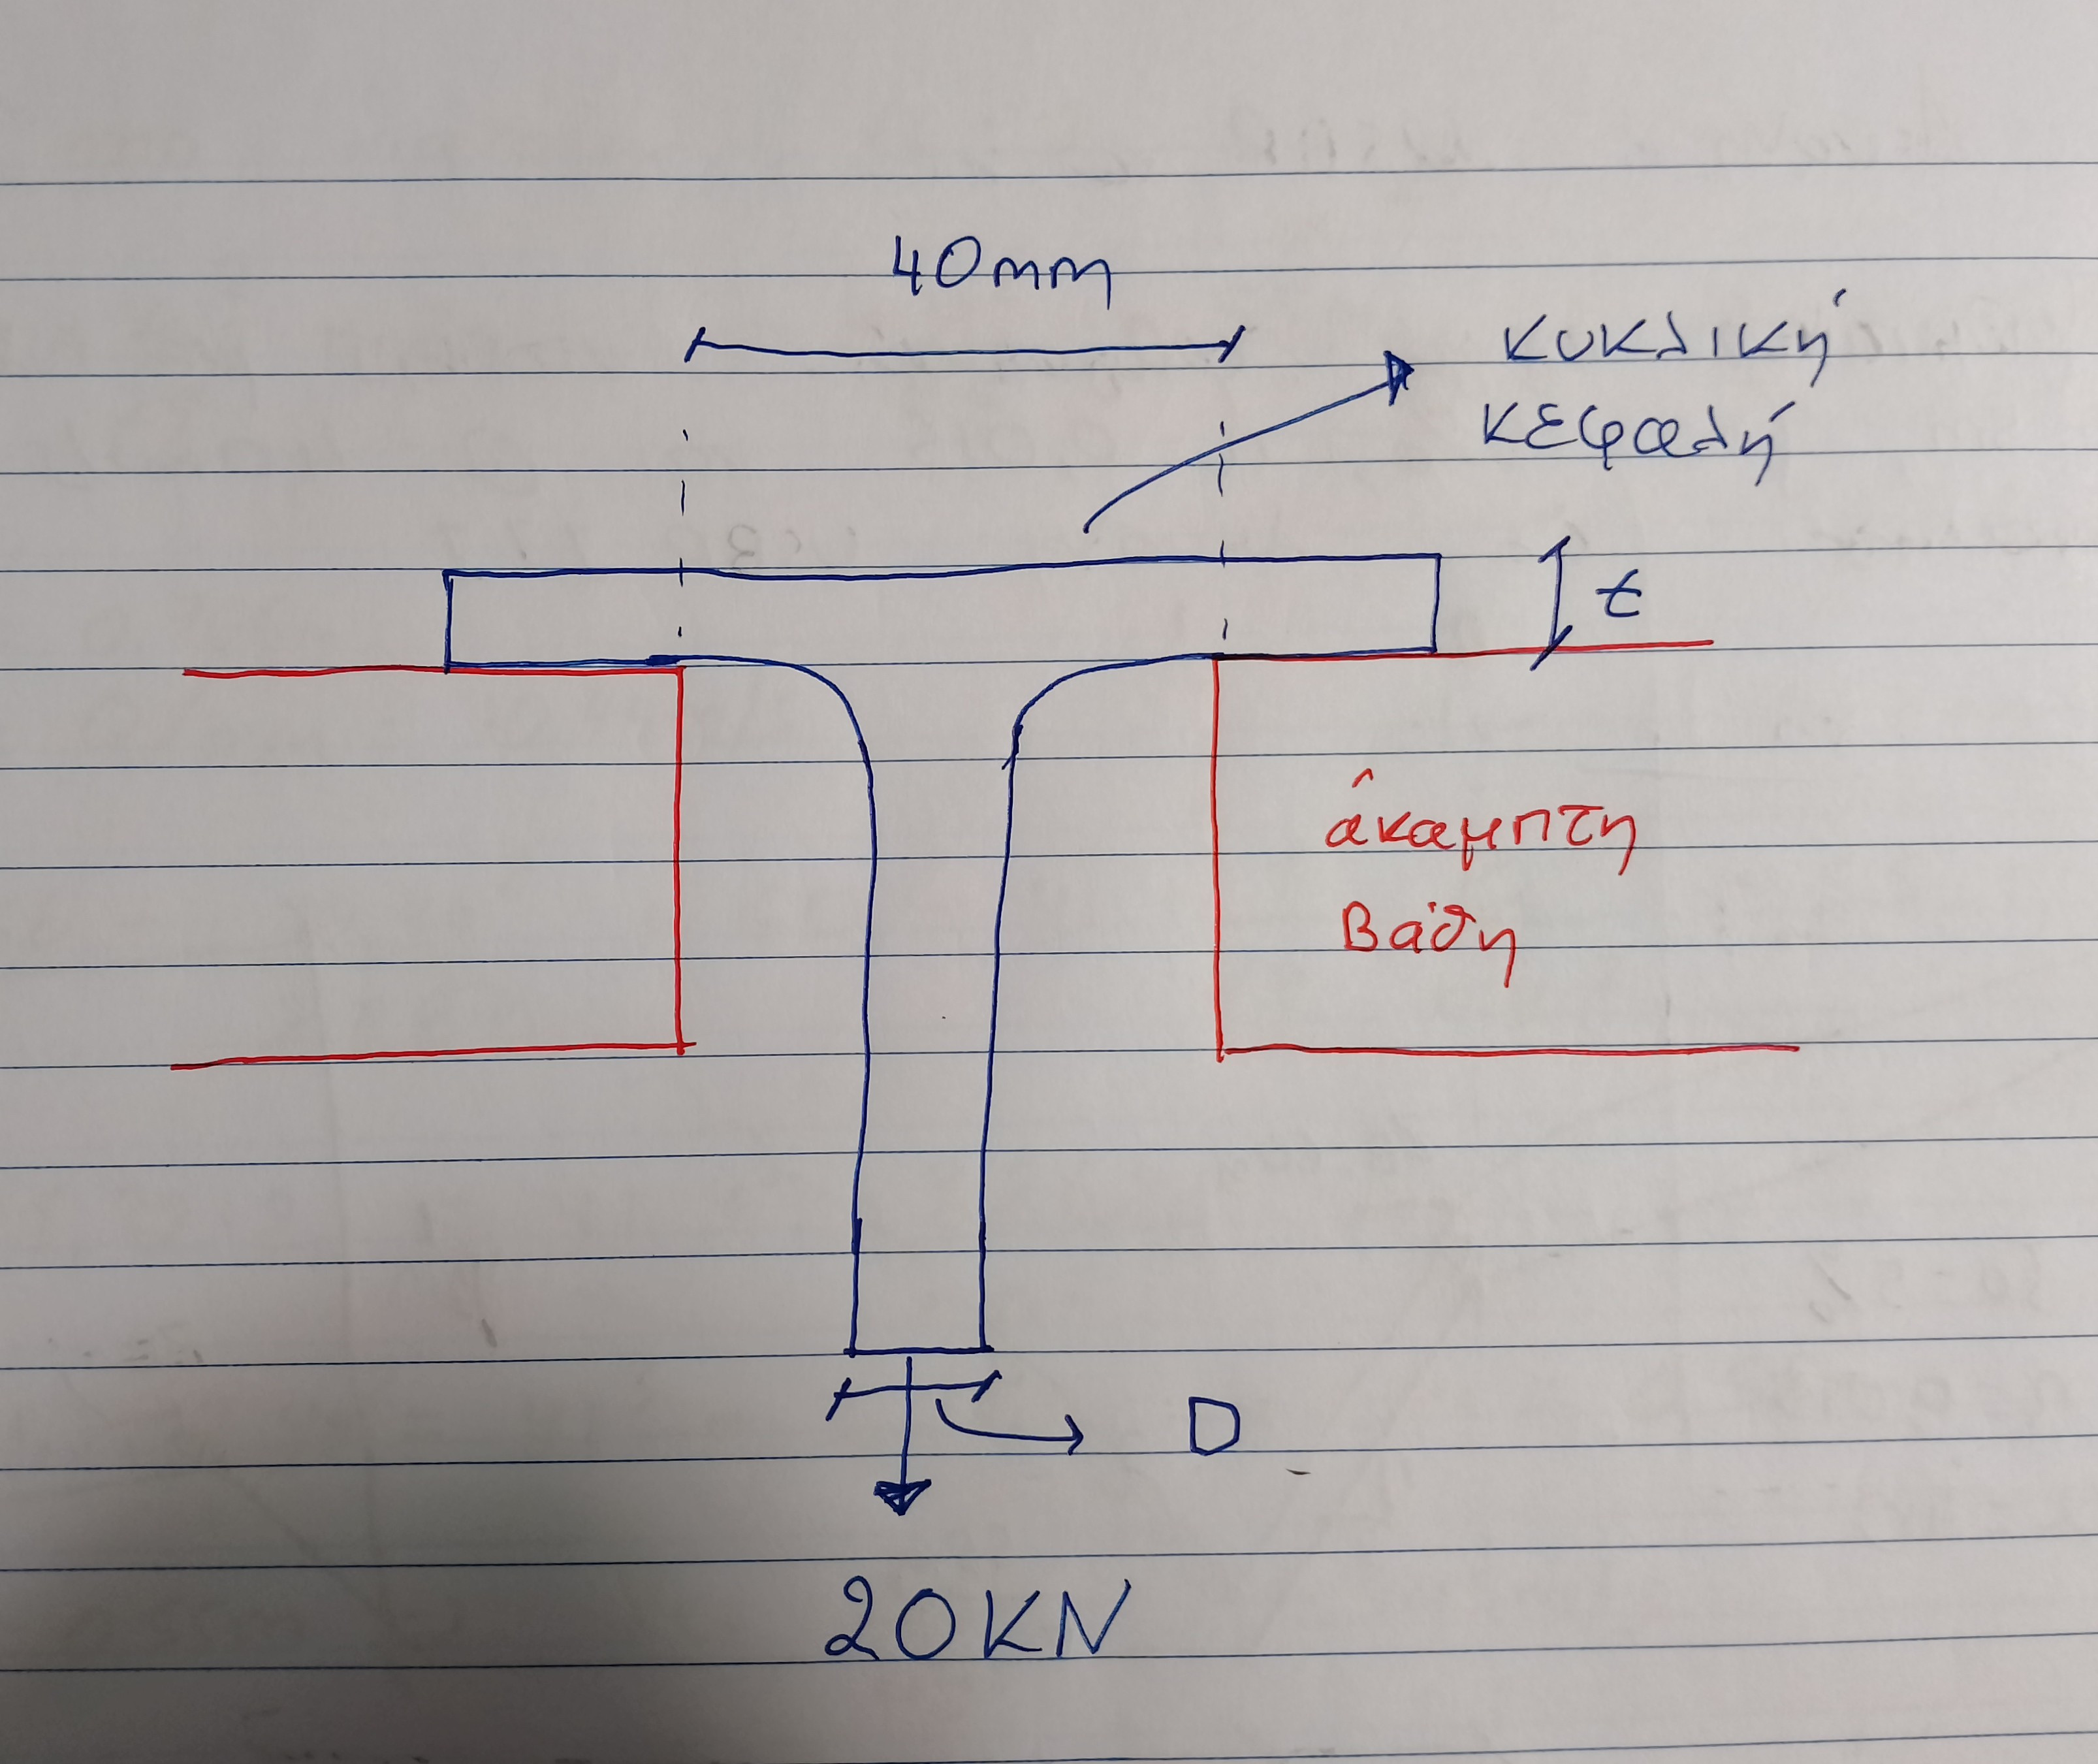 40mm
κυκλική
κεφαλή
t
άκαμπτη
Βάθη
D
20KN